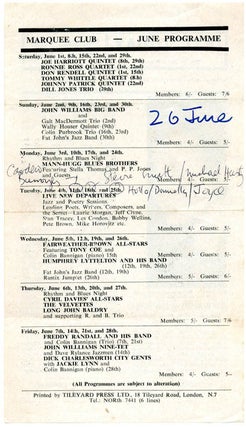 MARQUEE CLUB — JUNE PROGRAMME
Saturday, June 1st, 8th, 15th, 22nd, and 29th.
JOE HARRIOTT QUINTET (8th, 29th)
RONNIE ROSS QUARTET (1st, 22nd)
DON RENDELL QUINTET (1st, 15th)
TOMMY WHITTLE QUARTET (8th)
JOHNNY PATRICK QUINTET (22nd)
DILL JONES TRIO (29th)
Members: 6/- Guests: 7/6
Sunday, June 2nd, 9th, 16th, 23rd, and 30th.
JOHN WILLIAMS BIG BAND
and
Galt MacDERMOT Trio (2nd)
Wally Houser Quintet (9th)
Colin Purbrook Trio (16th, 23rd)
Fat John's Jazz Band (30th)
26 June
Members: 4/- Guests: 5/-
Monday, June 3rd, 10th, 17th, and 24th.
Rhythm and Blues Night
MANN-HUGG BLUES BROTHERS
Featuring Stella Thomas and P. P. Jones
and Guests
Members: 4/- Guests:
Tuesday, June 4th, 11th, 18th, and 25th.
LIVE NEW DEPARTURES
Jazz and Poetry Sessions
London Poets, Writers, Composers, and
the Semer—Laurie Morgan, Jeff Clyne,
Stan Tracey, Les Condon, Bobby Wellins,
Pete Brown, Mike Horovitz etc.
Members: 5/- Guests: 7/6
Wednesday, June 5th, 12th, 19th, and 26th.
FAIRWEATHER-BROWN ALL-STARS
Featuring TONY COE and
Colin Bannigan (piano) (5th, 19th)
HUMPHREY LYTTELTON AND HIS BAND
(12th, 19th, 26th)
Fat John's Jazz Band (12th)
Members: 5/- Guests: 6/-
Thursday, June 6th, 13th, 20th, and 27th.
Rhythm and Blues Night
CYRIL DAVIES' ALL-STARS
THE VELVETTES
LONG JOHN BALDRY
and supporting R. and B. Trio
Members: 5/- Guests: 6/-
Friday, June 7th, 14th, 21st, and 28th.
FREDDY RANDALL AND HIS BAND
and Colin Bannigan (Trio) (7th, 21st)
JOHN WILLIAMS NINE-TET
and Dave Rylance Jazzmen (14th)
DICK CHARLESWORTH CITY GENTS
with JACKIE LYNN and
Colin Bannigan (piano) (28th)
Members: 4/- Guests: 5/-
(All Programmes are subject to alteration)
Printed by TILEYARD PRESS LTD., 18 Tileyard Road, London, N.7
Tel: NORth 7441 (6 lines)